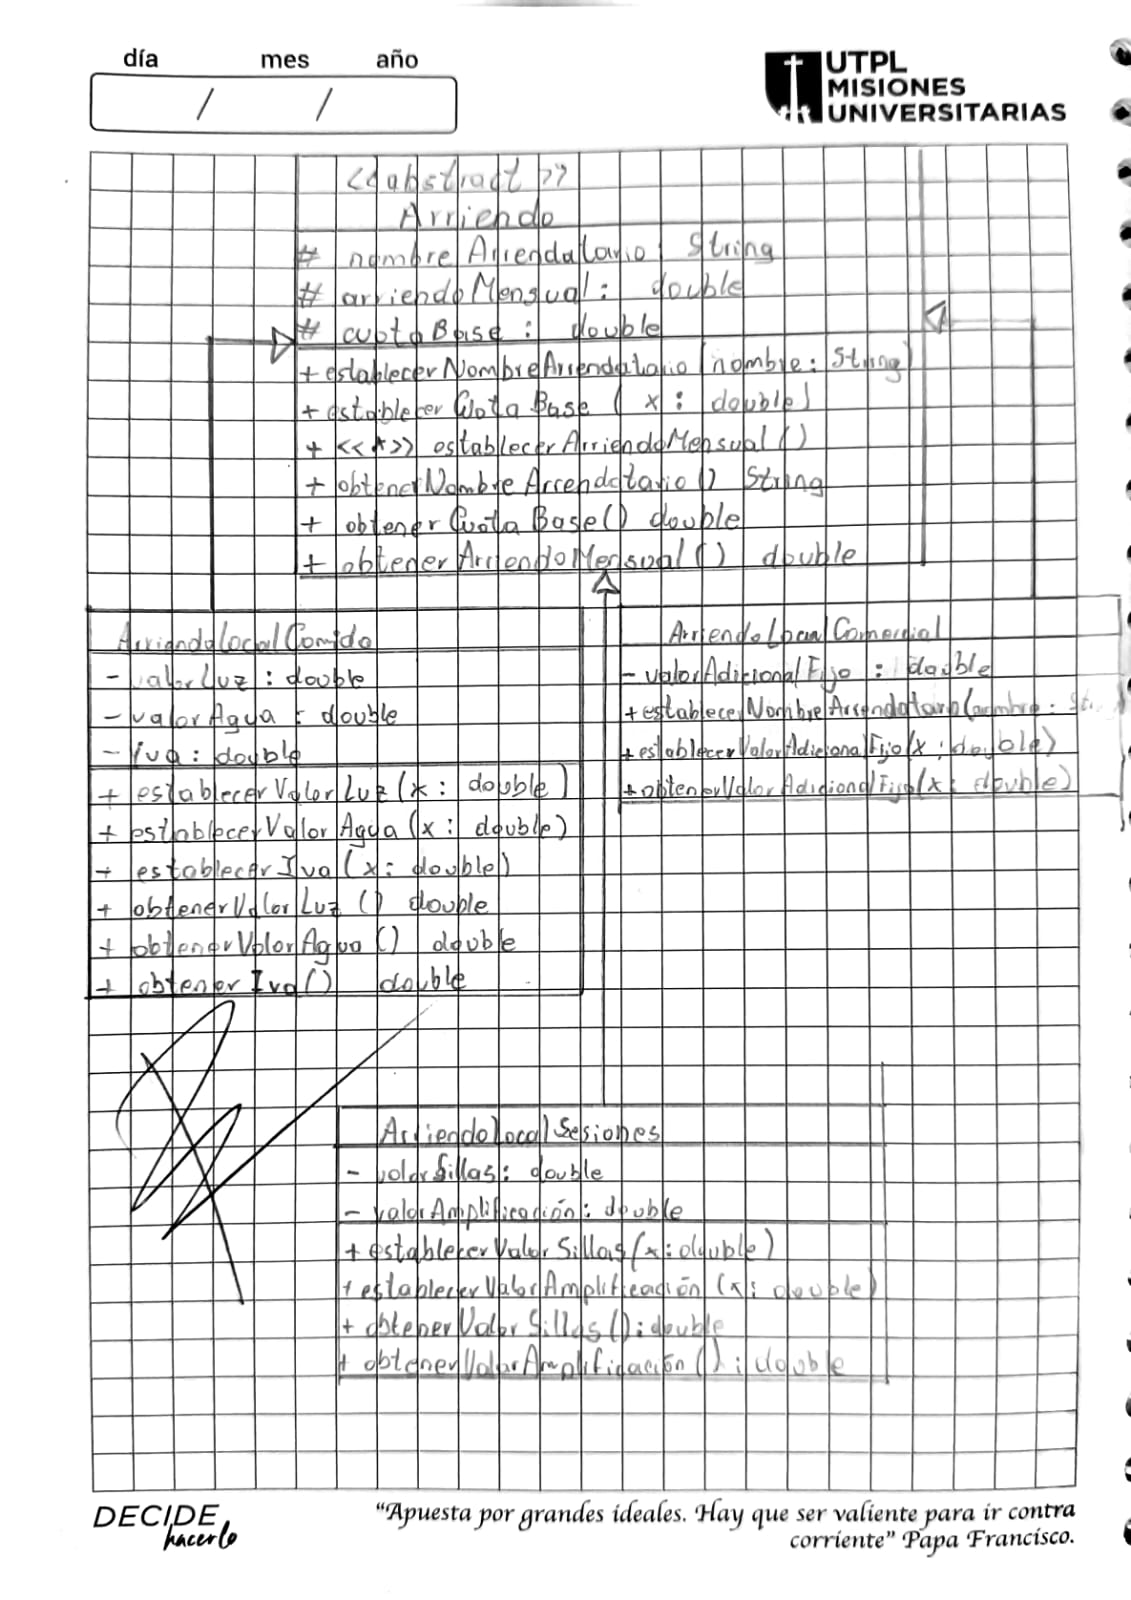 día mes año
/ /
UTPL
MISIONES
UNIVERSITARIAS
<<abstract>>
Arriendo
# nombreArrendatario: String
# arriendoMensual: double
# cuotaBase: double
+ establecerNombreArrendatario(nombre: String)
+ establecerCuotaBase(x: double)
+ <<*>> establecerArriendoMensual()
+ obtenerNombreArrendatario() String
+ obtenerCuotaBase() double
+ obtenerArriendoMensual() double
ArriendoLocalComida
- valorLuz: double
- valorAgua: double
- iva: double
+ establecerValorLuz(x: double)
+ establecerValorAgua(x: double)
+ establecerIva(x: double)
+ obtenerValorLuz() double
+ obtenerValorAgua() double
+ obtenerIva() double
ArriendoLocalComercial
- valorAdicionalFijo: double
+ establecerNombreArrendatario(nombre: St
+ establecerValorAdicionalFijo(x: double)
+ obtenerValorAdicionalFijo(x: double)
ArriendoLocalSesiones
- valorSillas: double
- valorAmplificación: double
+ establecerValorSillas(x: double)
+ establecerValorAmplificación(x: double)
+ obtenerValorSillas(): double
+ obtenerValorAmplificación(): double
DECIDE
hacerlo
“Apuesta por grandes ideales. Hay que ser valiente para ir contra
corriente” Papa Francisco.